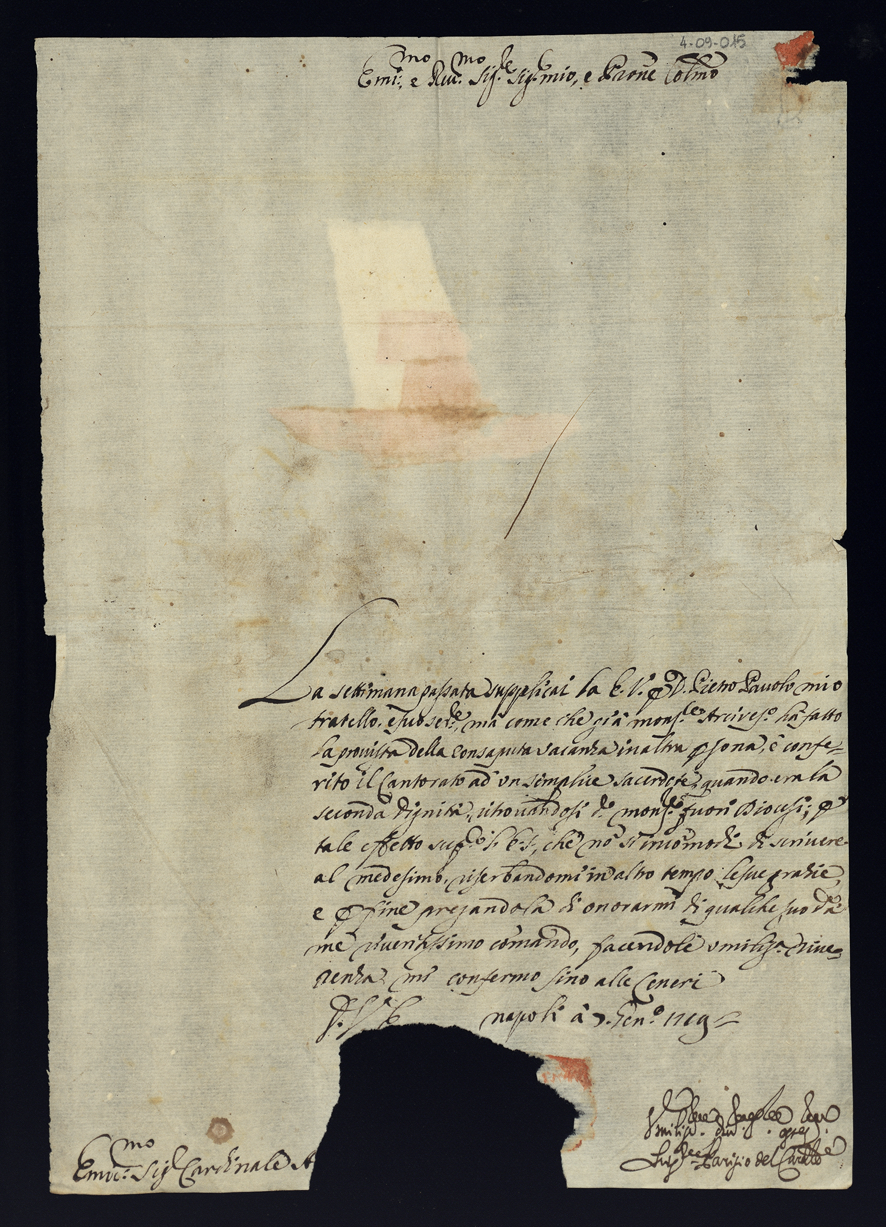 4-09-015
Em:mo e Rev:mo Sig:re Sig:re mio, e Prone Colmo
La settimana passata supplicai la E. V. p D. Pietro Pauolo mio
fratello, e suo ser:e, mà come che già mons:re Arcives:o hà fatto
la provista della consaputa vacanza in altra psona, e confe=
rito il Cantorato ad' un semplice sacerdote, quando era la
seconda dignità, ritrovandosi d:o mons:re fuori Diocesi; p
tale effetto sup:co V. E., che nō s'incomodi di scrivere
al medesimo, riserbandomi in altro tempo le sue grazie,
e p fine pregandola di onorarmi di qualche suo dà
me riveritissimo comando, facendole umiliss:a rive=
renza mi confermo sino alle Ceneri
D. V. E. napoli à 7. Gen:o 1719
Em:mo Sig:r Cardinale A
del Caretto